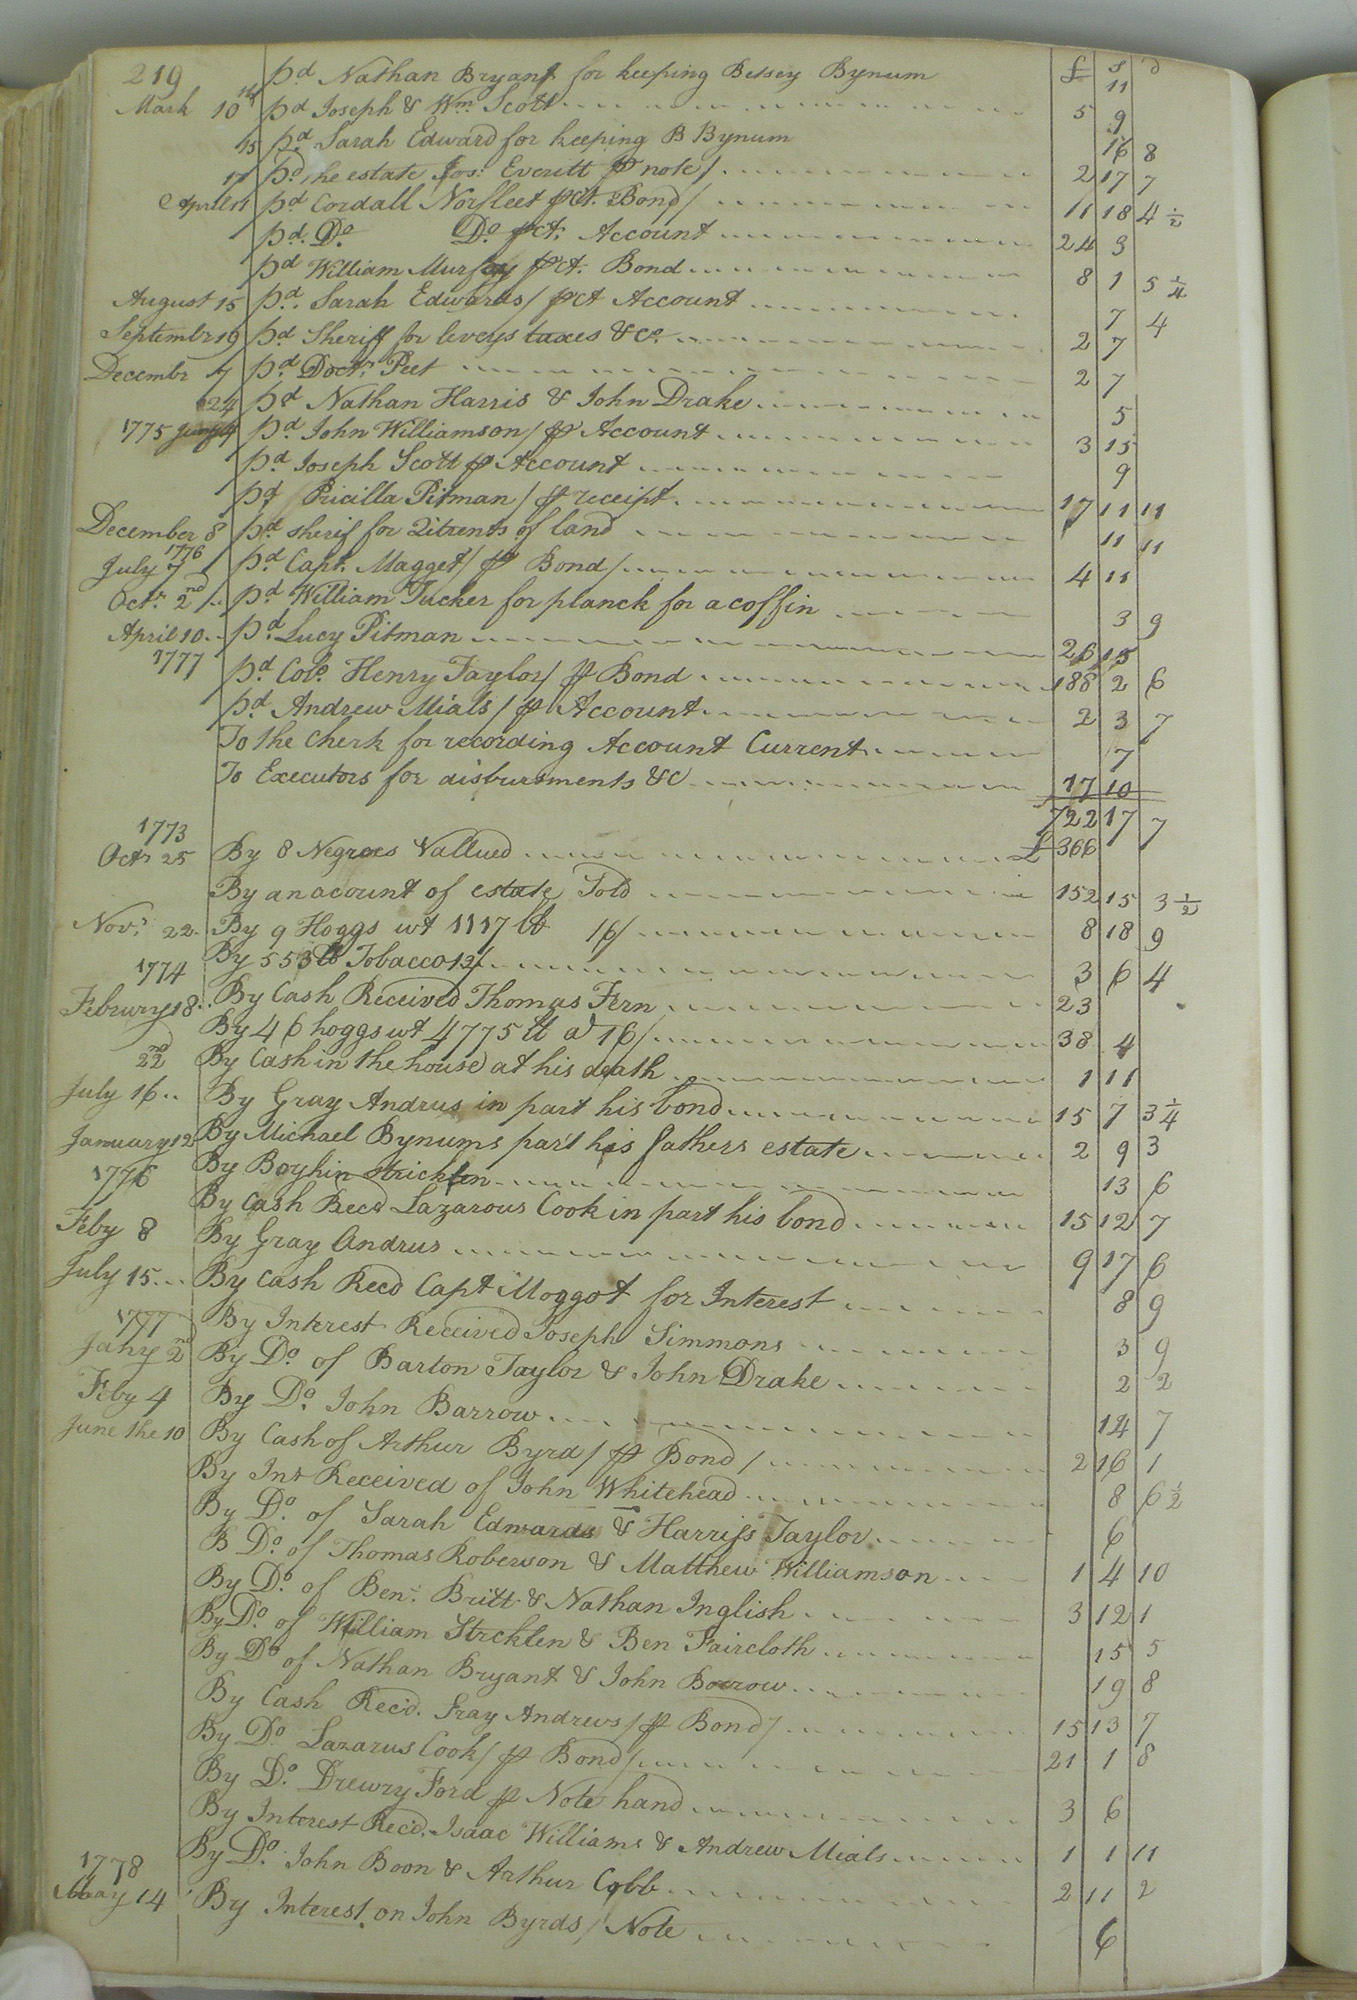 219 pd Nathan Bryant for keeping Betsey Bynum £ s d 11
Mark 10th pd Joseph & Wm Scott 5 9
15 pd Sarah Edward for keeping B Bynum 16 8
17 pd the estate Jos: Everitt ⅌ note / 2 17 7
April 11 pd Cordall Norfleet ⅌ct. Bond / 11 18 4 1/2
pd. Do Do ⅌ct. Account 24 3
pd William Murfey ⅌ct. Bond 8 1 5 1/4
August 15 pd. Sarah Edwards / ⅌ct Account 7 4
Septembr 19 pd Sheriff for leveys taxes &c 2 7
Decembr 7 pd Doctr. Peet 2 7
24 pd Nathan Harris & John Drake 5
1775 pd John Williamson / ⅌ Account 3 15
pd Joseph Scott ⅌ Account 9
pd Pricilla Pitman / ⅌ receipt 17 11 11
December 8 pd sherif for Quitrents of land 11 11
1776
July 7 pd Capt. Magget / ⅌ Bond / 4 11
Octr. 2nd pd William Tucker for planck for a coffin 3 9
April 10 pd. Lucy Pitman 26 15
1777 pd Colo. Henry Taylor / ⅌ Bond 188 2 6
pd Andrew Mials / ⅌ Account 2 3 7
To the Cherk for recording Account Current 7
To Executors for disbursments &c 17 10
722 17 7
1773
Octr 25 By 8 Negroes Vallued £ 366
By an acount of estate Sold 152 15 3 1/2
Novr. 22 By 9 Hoggs wt 1117 lb 16/ 8 18 9
By 553 lb Tobacco 12/ 3 6 4
1774
Februry 18 By Cash Received Thomas Fern 23
By 46 hoggs wt 4775 lb at 16/ 38 4
22nd By Cash in the house at his death 1 11
July 16 By Gray Andrus in part his bond 15 7 3 1/4
January 12 By Michael Bynums part his fathers estate 2 9 3
1776 By Boykin Stricklen 13 6
By Cash Recd Lazarous Cook in part his bond 15 12 7
Feby 8 By Gray Andrus 9 17 6
July 15 By Cash Recd Capt Moggot for Interest 8 9
1777 By Interest Received Joseph Simmons 3 9
Jany 2nd By Do. of Barton Taylor & John Drake 2 2
Feby 4 By Do. John Barrow 14 7
June the 10 By Cash of Arthur Byrd / ⅌ Bond / 2 16 1
By Int Received of John Whitehead 8 6 1/2
By Do. of Sarah Edwards & Harriss Taylor 6
B Do. of Thomas Roberson & Matthew Williamson 1 4 10
By Do. of Ben: Britt & Nathan Inglish 3 12 1
By Do. of William Strcklen & Ben Faircloth 15 5
By Do of Nathan Bryant & John Borrow 19 8
By Cash Recd. Gray Andrews / ⅌ Bond / 15 13 7
By Do. Lazarus Cook / ⅌ Bond / 21 1 8
By Do. Drewry Ford ⅌ Note hand 3 6
By Interest Recd. Isaac Williams & Andrew Mials 1 1 11
1778 By Do. John Boon & Arthur Cobb 2 11 2
May 14 By Interest on John Byrds / Note 6